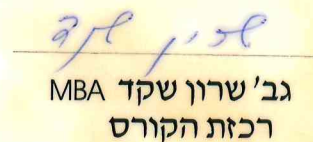 שרון שקד
גב' שרון שקד MBA
רכזת הקורס